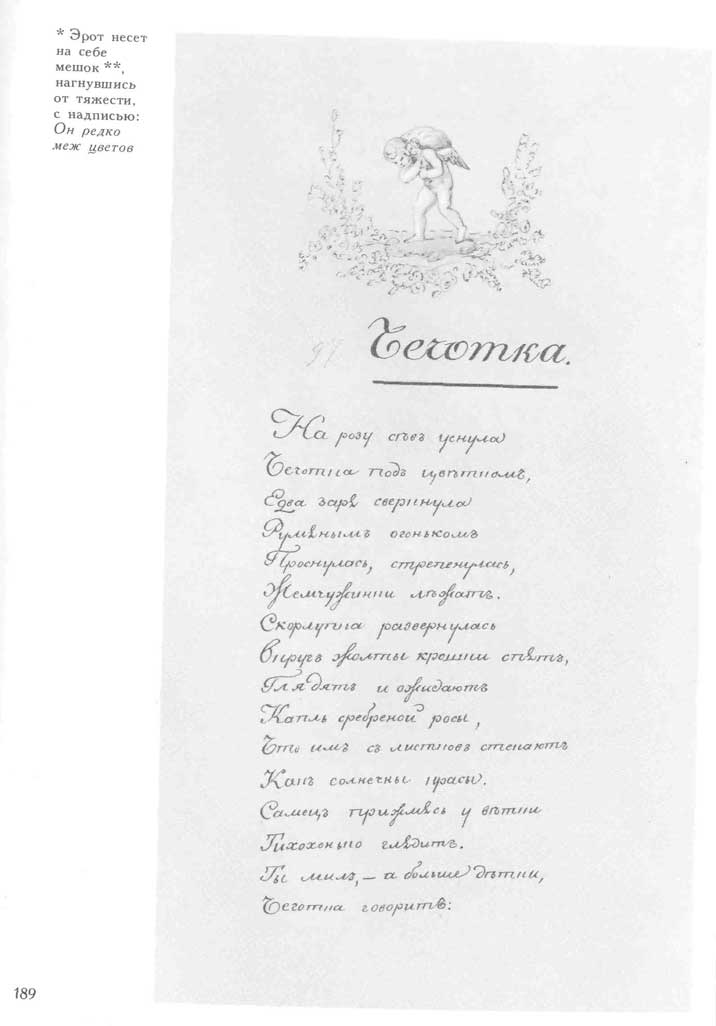 * Эрот несет
на себе
мешок **,
нагнувшись
от тяжести,
с надписью:
Он редко
меж цветов
97
Чечотка.
На розу сѣвъ уснула
Чечотка подъ цвѣткомъ,
Едва заря сверкнула
Румянымъ огонькомъ
Проснулась, стрепенулась,
Жемчужинки лѣжатъ.
Скорлупка развернулась
Вкругъ жолты крошки спятъ,
Глядятъ и ожидаютъ
Капль сребреной росы,
Что имъ съ листковъ стекаютъ
Какъ солнечны красы.
Самецъ прижмясь у вѣтки
Тихохонько глядитъ.
Ты милъ, — а больше дѣтки,
Чечотка говоритъ:
189